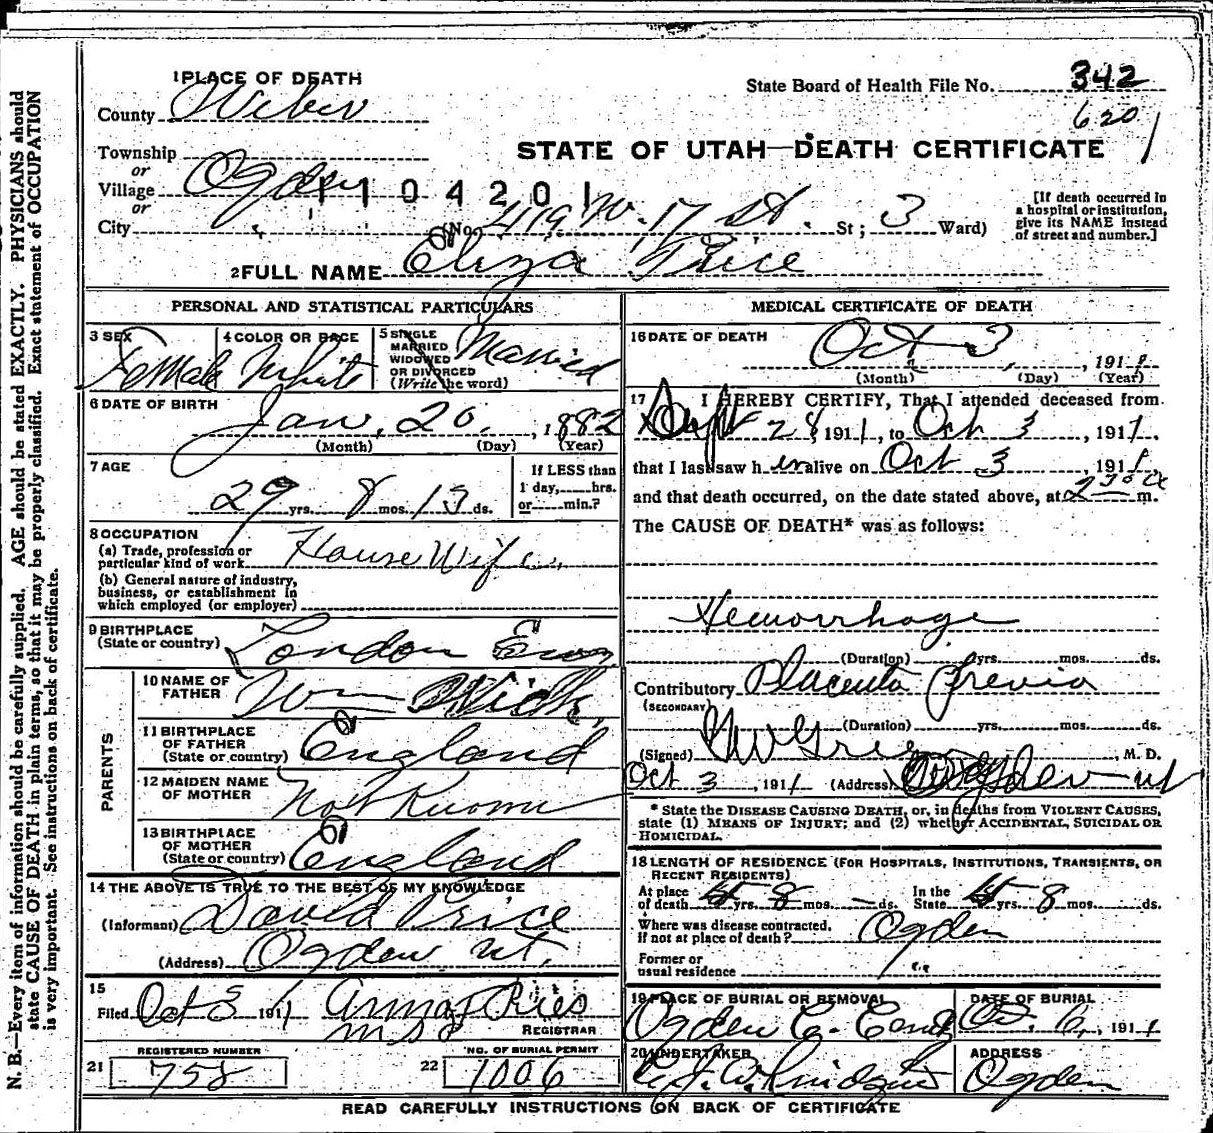 1 PLACE OF DEATH
State Board of Health File No. 342
620
County Weber
STATE OF UTAH—DEATH CERTIFICATE
Township
or
Village Ogden 110420
or
City (No. 419 W. 17 St. St; 3 Ward)
[If death occurred in a hospital or institution, give its NAME instead of street and number.]
2 FULL NAME Eliza Price
PERSONAL AND STATISTICAL PARTICULARS
3 SEX Female
4 COLOR OR RACE White
5 SINGLE MARRIED WIDOWED OR DIVORCED (Write the word) Married
6 DATE OF BIRTH Jan. 20, 1882
(Month) (Day) (Year)
7 AGE
29 yrs. 8 mos. 13 ds.
If LESS than 1 day, hrs. or min.?
8 OCCUPATION
(a) Trade, profession or particular kind of work House Wife
(b) General nature of industry, business, or establishment in which employed (or employer)
9 BIRTHPLACE (State or country) London Eng
PARENTS
10 NAME OF FATHER Wm
11 BIRTHPLACE OF FATHER (State or country) England
12 MAIDEN NAME OF MOTHER Not Known
13 BIRTHPLACE OF MOTHER (State or country) England
14 THE ABOVE IS TRUE TO THE BEST OF MY KNOWLEDGE
(Informant) David Price
(Address) Ogden Ut.
15
Filed Oct 3 1911
REGISTRAR
REGISTERED NUMBER
21 758
NO. OF BURIAL PERMIT
22 1006
MEDICAL CERTIFICATE OF DEATH
16 DATE OF DEATH Oct 3, 1911
(Month) (Day) (Year)
17 I HEREBY CERTIFY, That I attended deceased from
Sept 28, 1911, to Oct 3, 1911.
that I last saw her alive on Oct 3, 1911.
and that death occurred, on the date stated above, at 2 30 a m.
The CAUSE OF DEATH* was as follows:
Hemorrhage
(Duration) yrs. mos. ds.
Contributory (SECONDARY) Placenta Previa
(Duration) yrs. mos. ds.
(Signed) M. D.
Oct 3, 1911 (Address) Ogden Ut
* State the DISEASE CAUSING DEATH, or, in deaths from VIOLENT CAUSES, state (1) MEANS OF INJURY; and (2) whether ACCIDENTAL, SUICIDAL OR HOMICIDAL.
18 LENGTH OF RESIDENCE (FOR HOSPITALS, INSTITUTIONS, TRANSIENTS, OR RECENT RESIDENTS)
At place of death yrs. 8 mos. — ds. In the State yrs. 8 mos. ds.
Where was disease contracted, if not at place of death? Ogden
Former or usual residence
19 PLACE OF BURIAL OR REMOVAL Ogden C. Cem
DATE OF BURIAL Oct. 6, 1911
20 UNDERTAKER
ADDRESS Ogden
READ CAREFULLY INSTRUCTIONS ON BACK OF CERTIFICATE
N. B.—Every item of information should be carefully supplied. AGE should be stated EXACTLY. PHYSICIANS should
state CAUSE OF DEATH in plain terms, so that it may be properly classified. Exact statement of OCCUPATION
is very important. See instructions on back of certificate.